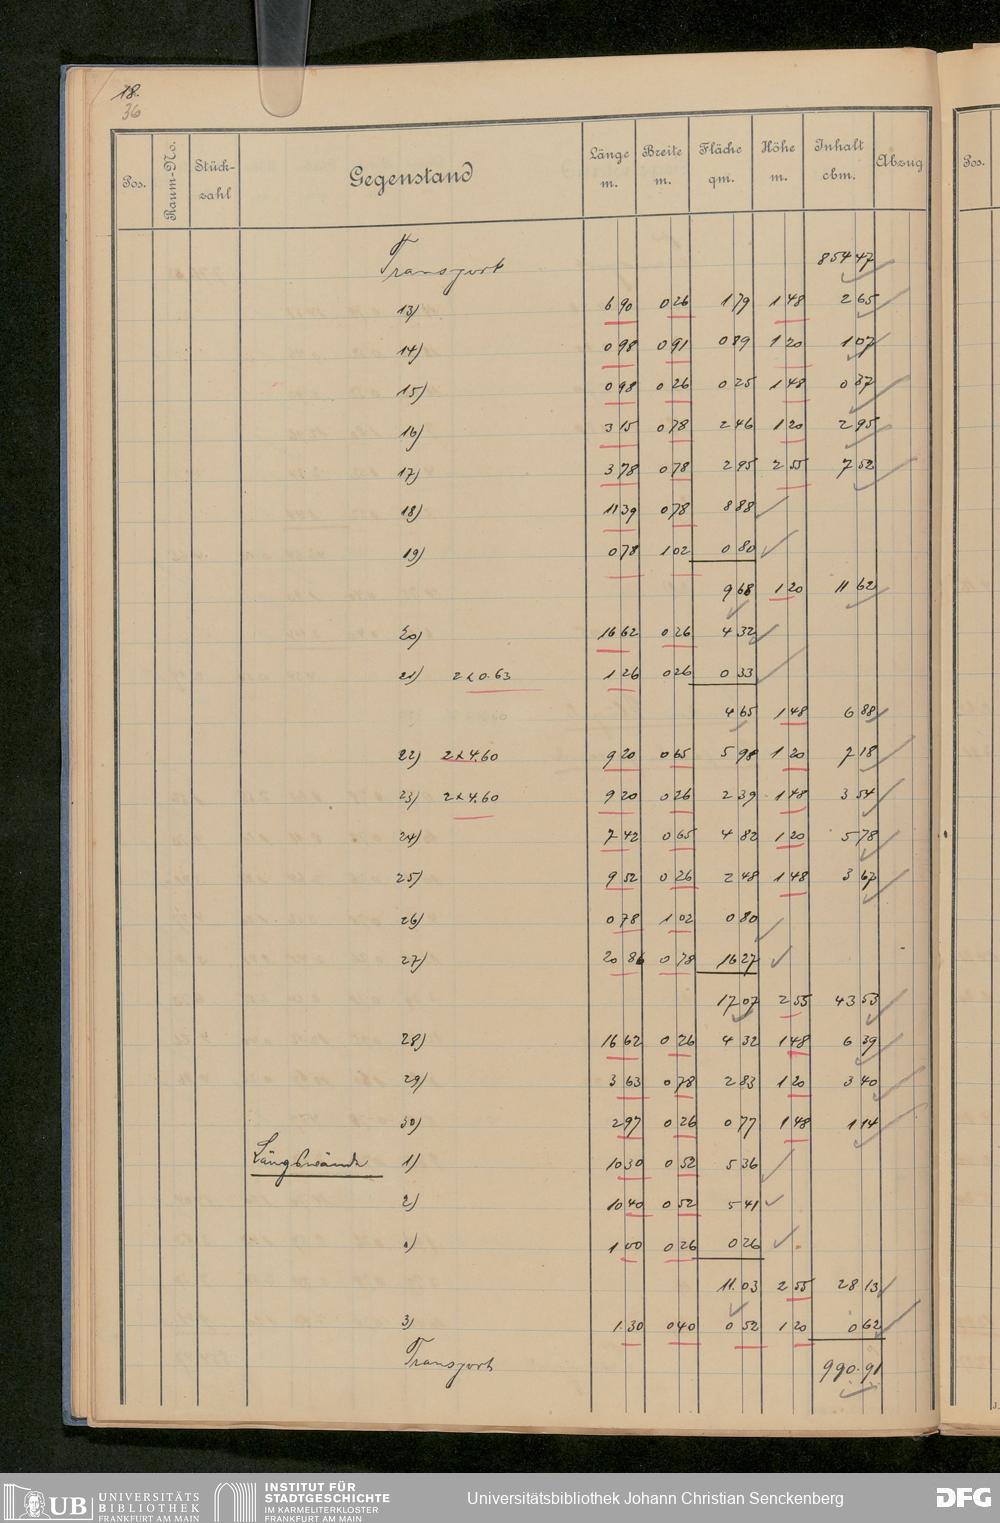 18.
36
Pos. Raum-No. Stück-zahl Gegenstand Länge m. Breite m. Fläche qm. Höhe m. Inhalt cbm. Abzug Pos.
Transport 854 47
13) 6 90 0 26 1 79 1 48 2 65
14) 0 98 0 91 0 89 1 20 1 07
15) 0 98 0 26 0 25 1 48 0 37
16) 3 15 0 78 2 46 1 20 2 95
17) 3 78 0 78 2 95 2 55 7 52
18) 11 39 0 78 8 88
19) 0 78 1 02 0 80
9 68 1 20 11 62
20) 16 62 0 26 4 32
21) 2 x 0.63 1 26 0 26 0 33
4 65 1 48 6 88
22) 2 x 4.60 9 20 0 65 5 98 1 20 7 18
23) 2 x 4.60 9 20 0 26 2 39 1 48 3 54
24) 7 42 0 65 4 82 1 20 5 78
25) 9 52 0 26 2 48 1 48 3 67
26) 0 78 1 02 0 80
27) 20 86 0 78 16 27
17 07 2 55 43 53
28) 16 62 0 26 4 32 1 48 6 39
29) 3 63 0 78 2 83 1 20 3 40
30) 2 97 0 26 0 77 1 48 1 14
Längswände 1) 10 30 0 52 5 36
2) 10 40 0 52 5 41
1 00 0 26 0 26
11.03 2 55 28 13
3) 1.30 0 40 0 52 1 20 0 62
Transport 990.91
UB UNIVERSITÄTS
BIBLIOTHEK
FRANKFURT AM MAIN
INSTITUT FÜR
STADTGESCHICHTE
IM KARMELITERKLOSTER
FRANKFURT AM MAIN
Universitätsbibliothek Johann Christian Senckenberg
DFG